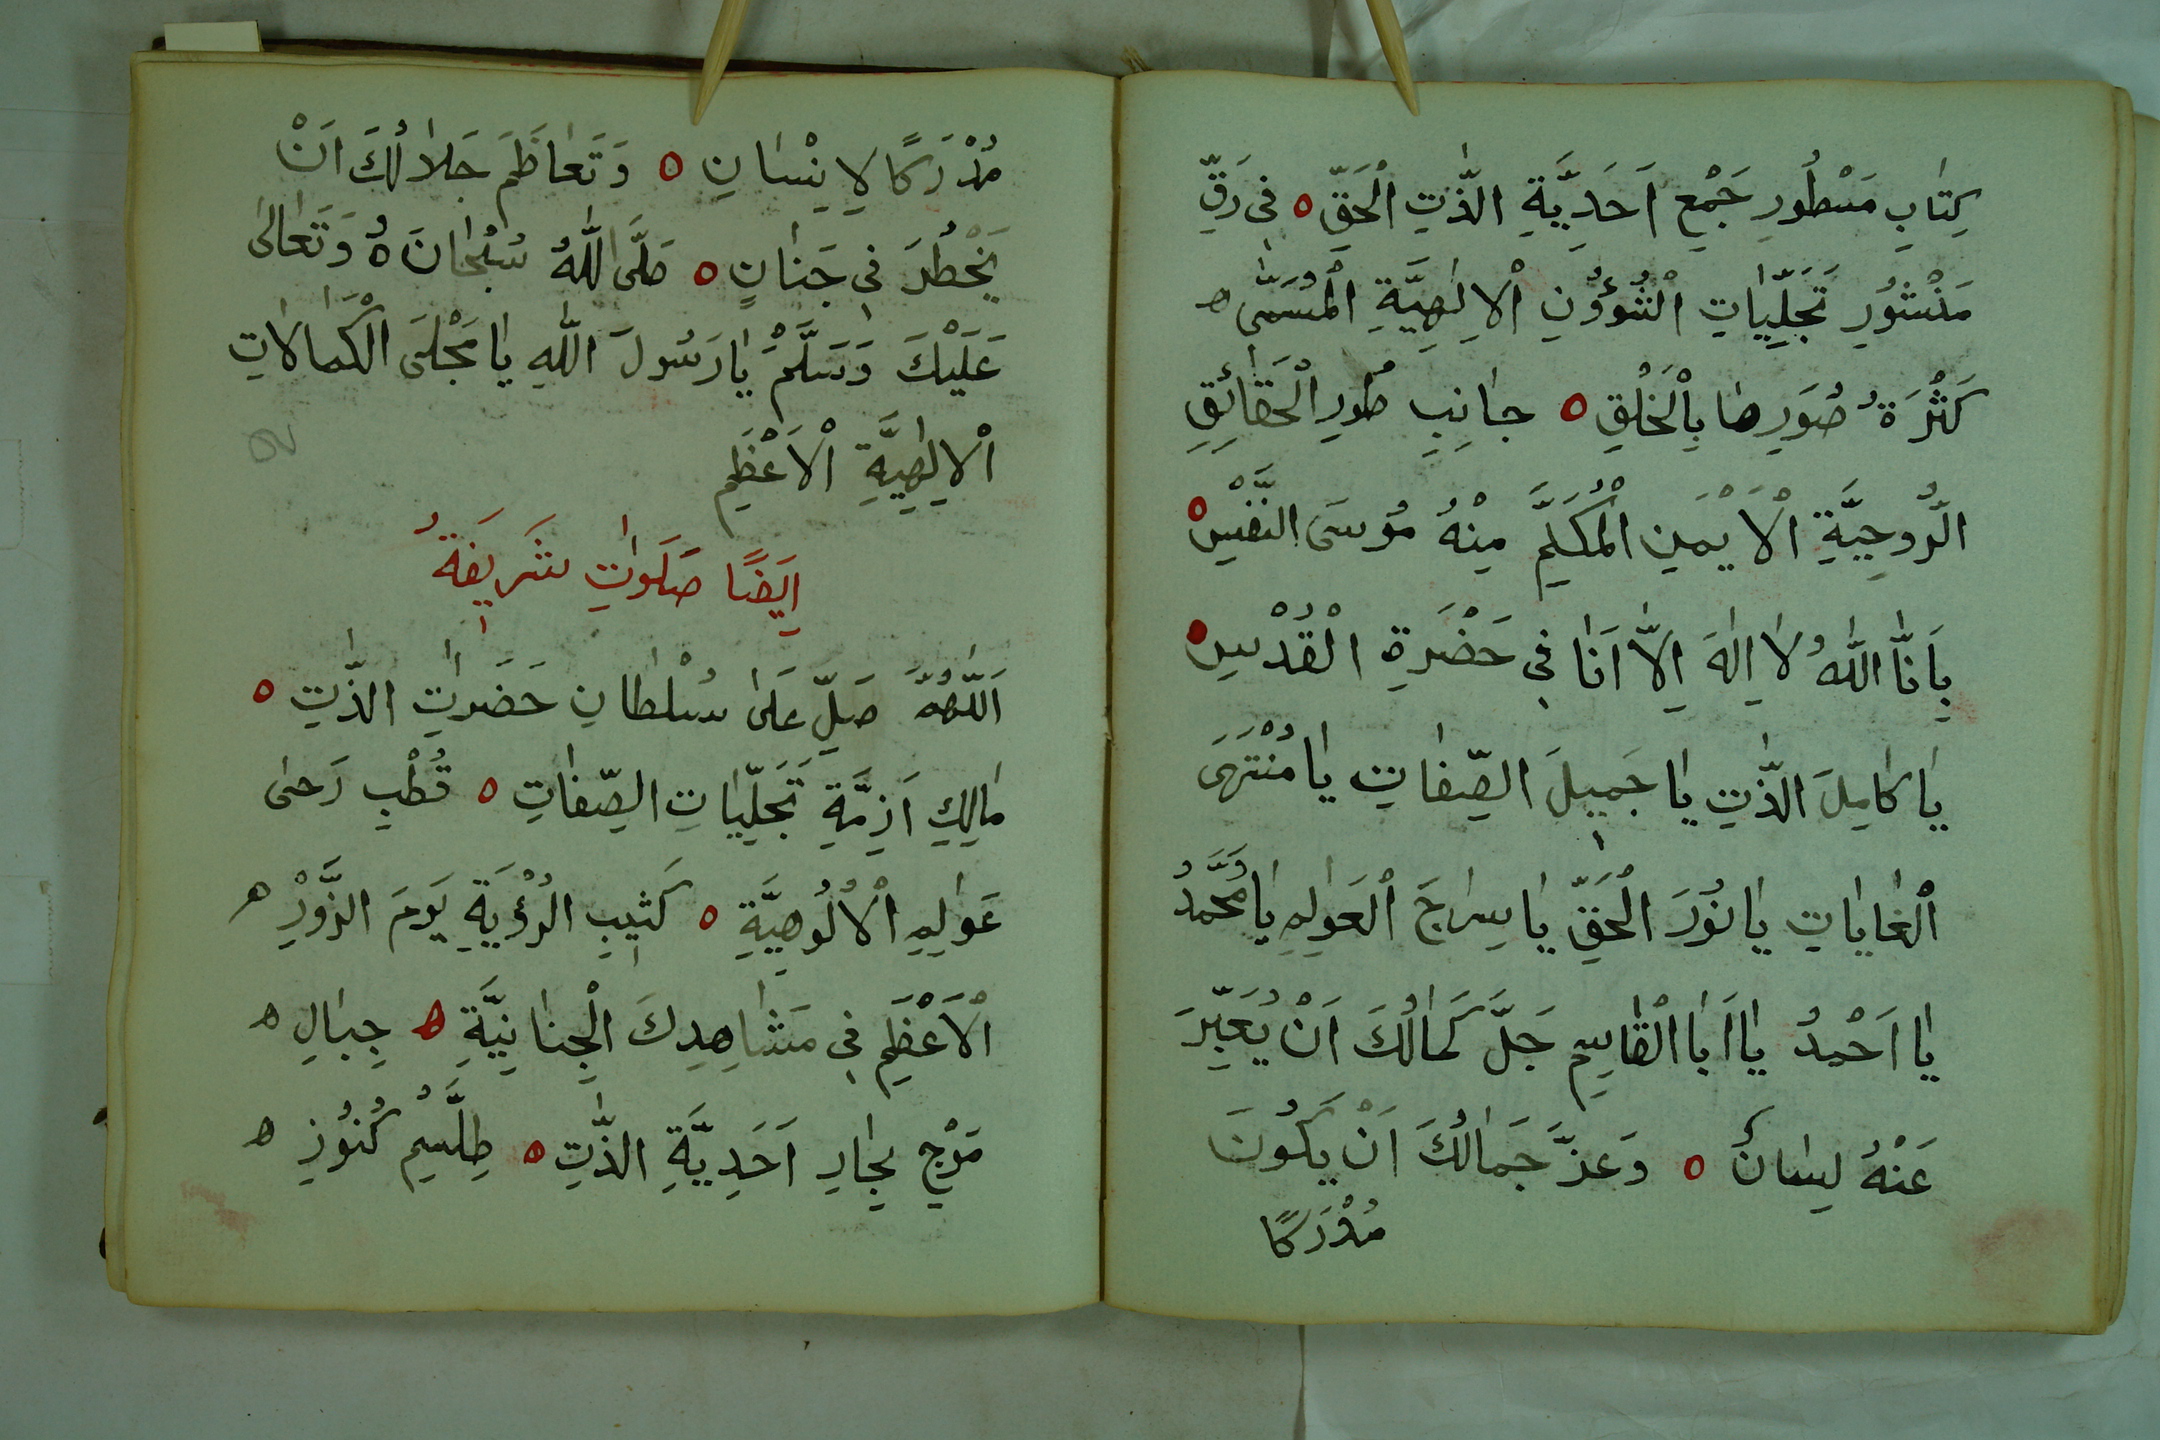 كِتَابِ مَسْطُورِ جَمْعِ اَحَدِيَّةِ الذَّتِ الْحَقِّ ه فِى رَقِّ
مَنْشُورِ تَجَلِّيَاتِ الشُّؤُنِ الْاِلٰهِيَّةِ الْمُسَمّٰى ه
كَثْرَةُ صُوَرِهَا بِالْخَلْقِ ه جَانِبِ طُورِ الْحَقَائِقِ
الرُّوحِيَّةِ الْاَيْمَنِ الْمُكَلَّمِ مِنْهُ مُوسَى النَّفْسِ ه
بِاَنَّا اللّٰهُ لَا اِلٰهَ اِلَّا اَنَا فِى حَضْرَةِ الْقُدْسِ ه
يَا كَامِلَ الذَّتِ يَا جَمِيلَ الصِّفَاتِ يَا مُنْتَهَى
الْغَايَاتِ يَا نُورَ الْحَقِّ يَا سِرَاجَ الْعَوَالِمِ يَا مُحَمَّدُ
يَا اَحْمَدُ يَا اَبَا الْقَاسِمِ جَلَّ كَمَالُكَ اَنْ يُعَبِّرَ
عَنْهُ لِسَانٌ ه وَعَزَّ جَمَالُكَ اَنْ يَكُونَ
مُدْرَكًا
مُدْرَكًا لِاِنْسَانٍ ه وَتَعَاظَمَ جَلَالُكَ اَنْ
يَخْطُرَ فِى جَنَانٍ ه صَلَّى اللّٰهُ سُبْحَانَهُ وَتَعَالٰى
عَلَيْكَ وَسَلَّمَ يَا رَسُولَ اللّٰهِ يَا مَجْلَى الْكَمَالَاتِ
الْاِلٰهِيَّةِ الْاَعْظَمِ
اَيَضًا صَلَوَاتِ شَرِيفَةُ
اَللّٰهُمَّ صَلِّ عَلٰى سُلْطَانِ حَضَرَاتِ الذَّتِ ه
مَالِكِ اَزِمَّةِ تَجَلِّيَاتِ الصِّفَاتِ ه قُطْبِ رَحٰى
عَوَالِمِ الْاُلُوهِيَّةِ ه كَثِيبِ الرُّؤْيَةِ يَوْمَ الزَّوْرِ ه
الْاَعْظَمِ فِى مَشَاهِدِكَ الْجِنَانِيَّةِ ه جِبَالِ ه
مَوْجِ بِحَارِ اَحَدِيَّةِ الذَّتِ ه طِلَّسْمِ كُنُوزِ ه